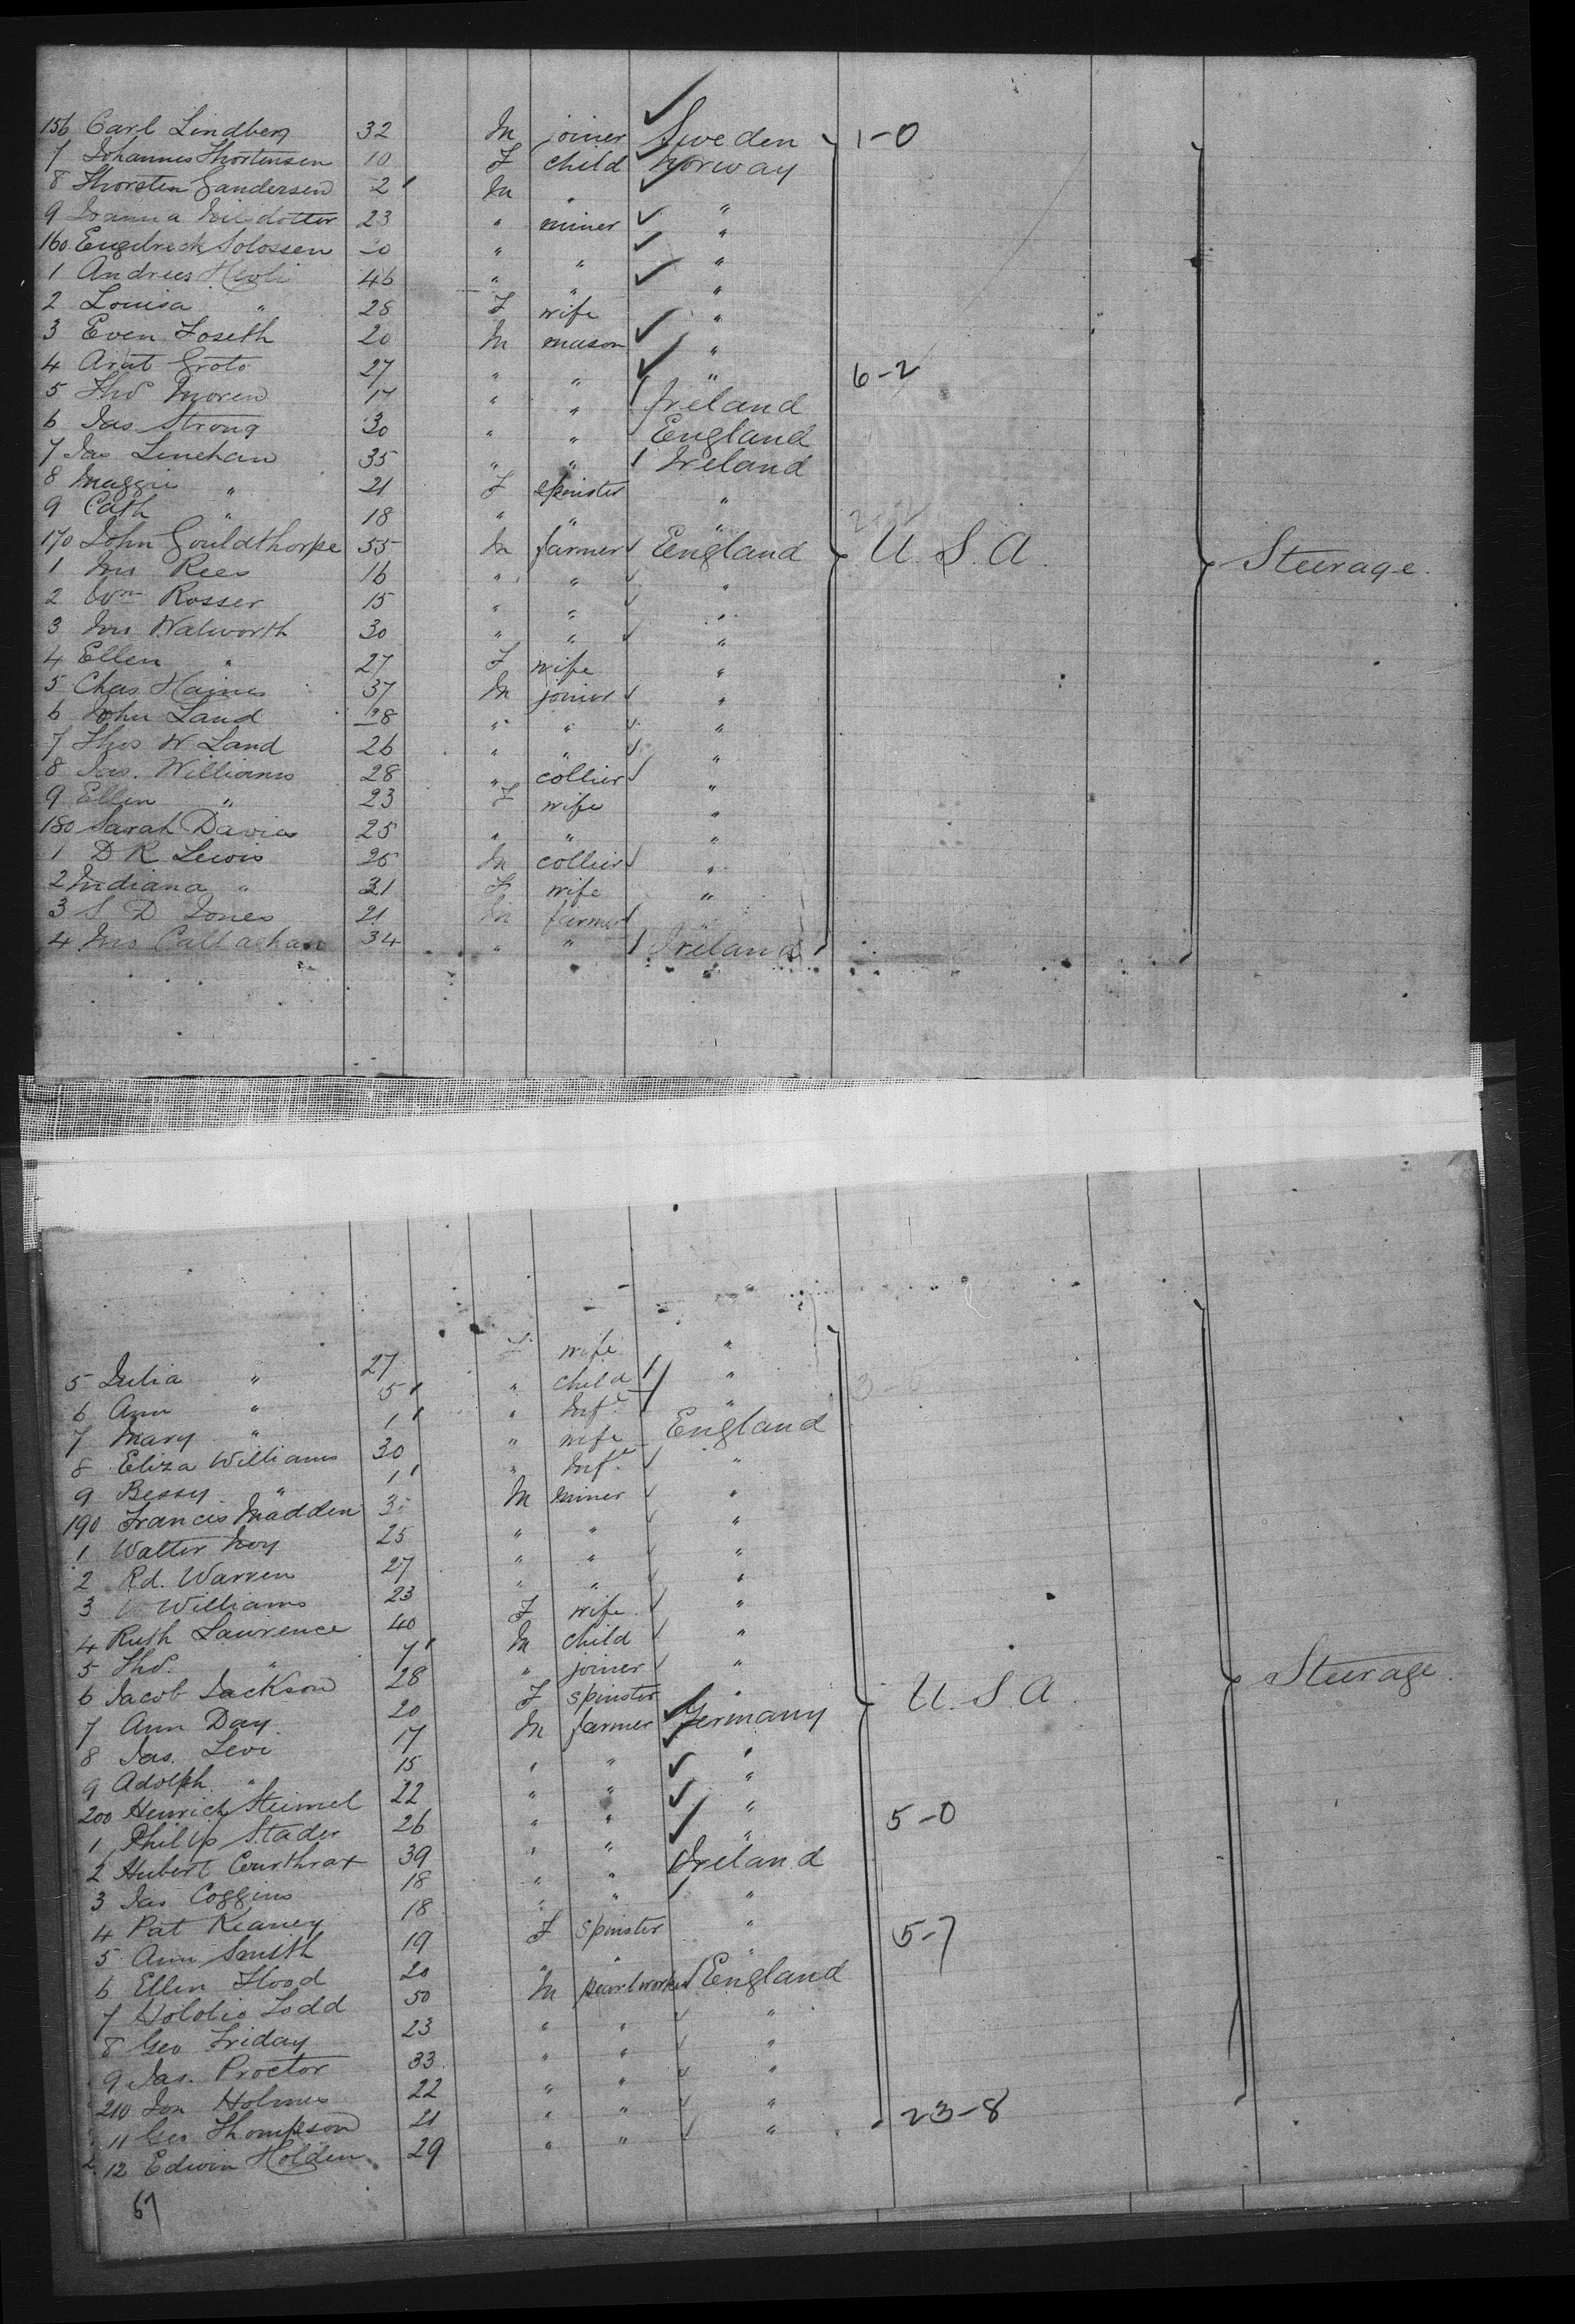 156 Carl Lindberg 32 M joiner Sweden 1-0
7 Johannes Thortensen 10 F child Norway
8 Thorsten Gandersen 2 M " "
9 Joanna Nilsdotter 23 " miner "
160 Engebreck Solossen 20 " " "
1 Andrees Hevli 46 " " "
2 Louisa " 28 F wife "
3 Even Foseth 20 M mason "
4 Arnt Groto 27 " " " 6-2
5 Thos Moren 17 " " Ireland
6 Jas Strong 30 " " England
7 Jas Linehan 35 " " Ireland
8 Maggie " 21 F spinster "
9 Cath " 18 " " "
170 John Gouldthorpe 55 M farmer England U.S.A. Steerage.
1 Jno Rees 16 " " "
2 Wm Rosser 15 " " "
3 Jno Walworth 30 " " "
4 Ellen " 27 F wife "
5 Chas Haines 37 M joiner "
6 John Land 28 " " "
7 Thos W. Land 26 " " "
8 Jas. Williams 28 " collier "
9 Ellen " 23 F wife "
180 Sarah Davies 25 " " "
1 D R Lewis 25 M collier "
2 Indiana " 31 F wife "
3 S D Jones 21 M farmer "
4 Jno Callaghan 34 " " Ireland
5 Julia " 27 F wife "
6 Ann " 5 " child "
7 Mary " 1 " Inft "
8 Eliza Williams 30 " wife England
9 Bessy " 1 " Inft "
190 Francis Madden M miner "
1 Walter Noy 25 " " "
2 Rd. Warren 27 " " "
3 Williams 23 " " "
4 Ruth Lawrence 40 F wife "
5 Thos. " 7 M child "
6 Jacob Jackson 28 " joiner "
7 Ann Day 20 F spinster "
8 Jas. Levi 17 M farmer Germany U.S.A. Steerage.
9 Adolph " 15 " " "
200 Henrich Steimel 22 " " "
1 Philip Stader 26 " " " 5-0
2 Hubert Courthrax 39 " " "
3 Jas Coggins 18 " " Ireland
4 Pat Keaney 18 " " "
5 Ann Smith 19 F spinster " 5-7
6 Ellen Flood 20 " " "
7 Todd 50 M pearlworker England
8 Geo Friday 23 " " "
9 Jas. Proctor 33 " " "
210 Jon Holmes 22 " " "
11 Geo Thompson 21 " " "
12 Edwin Holden 29 " " " 23-8
57